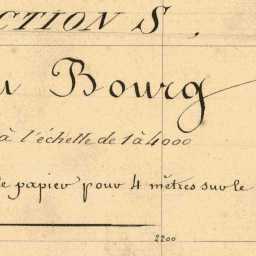 CTION S.
u Bourg
à l'échelle de 1 à 4000
e papier pour 4 mètres sur le
2200